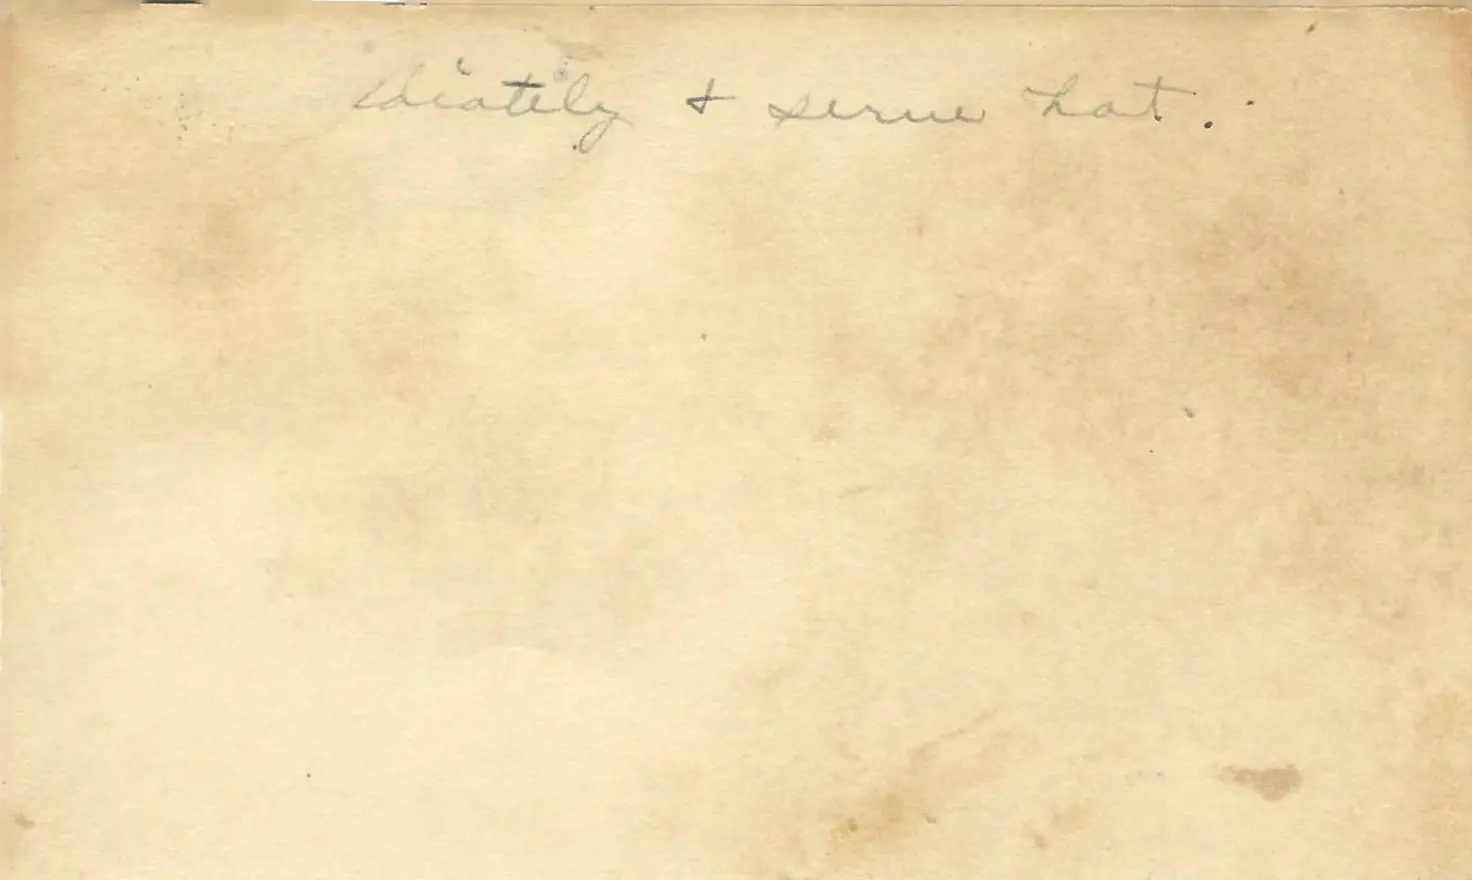 diately & serve hot.